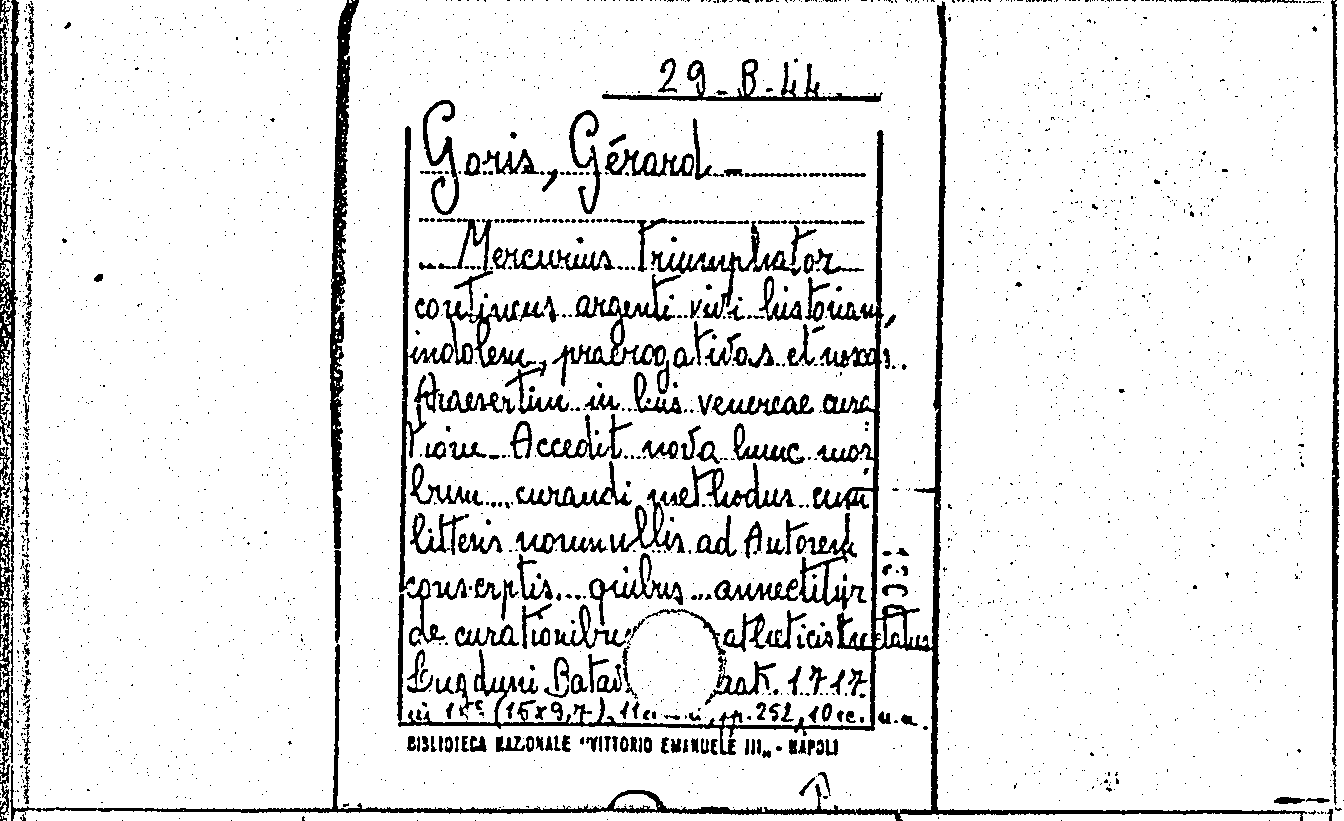 29-B-44
Goris, Gérard -
... Mercurius Triumphator
continens argenti vivi historiam,
indolem, praerogativas et noxas.
Praesertim in luis venereae cura
tione. Accedit nova hunc mor
bum... curandi methodus cum
litteris nonnullis ad Autorem
conscriptis... quibus ... annectitur
de curationibus tractatus
Lugduni Batav 1717
pp. 252, 10 cc. n.n.
BIBLIOTECA NAZIONALE "VITTORIO EMANUELE III„ - NAPOLI